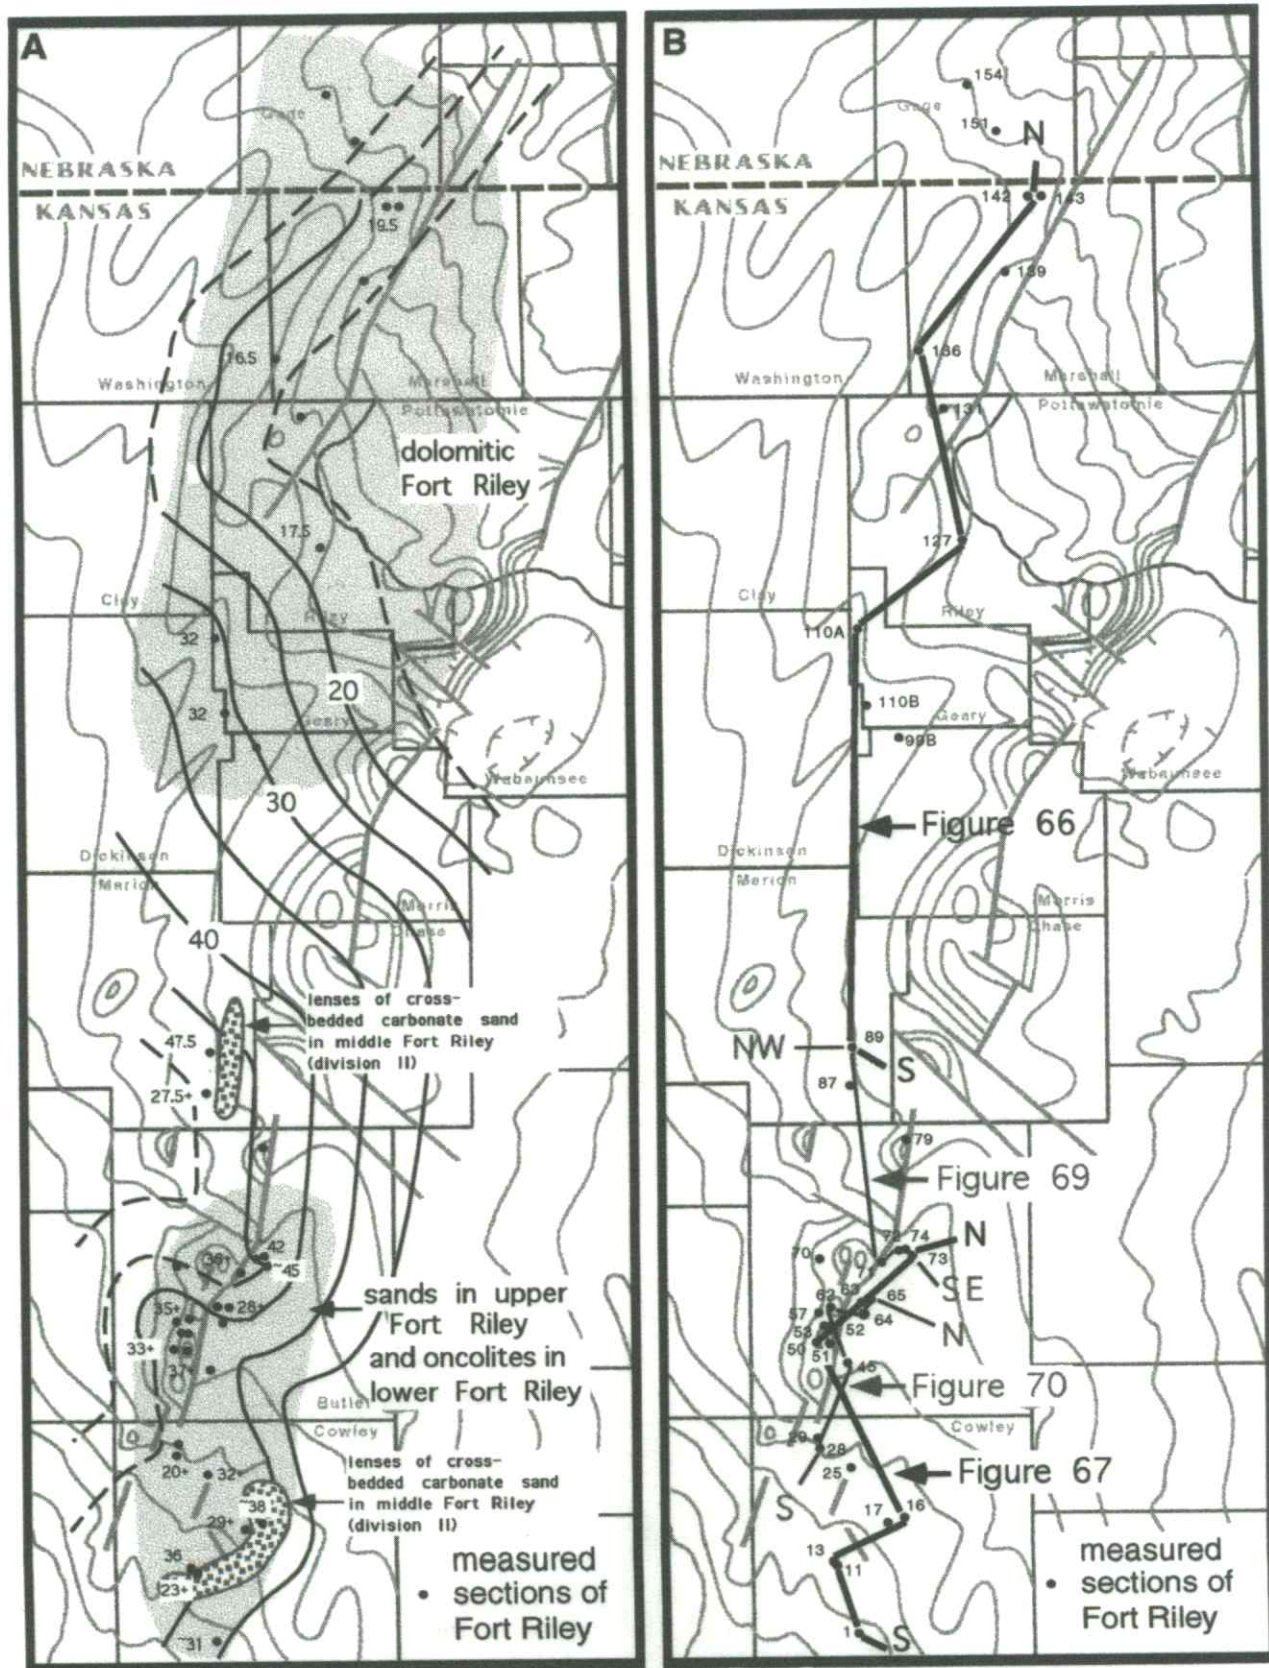 A
Gage
NEBRASKA
KANSAS
19.5
16.5
Washington
Marshall
Pottawatomie
dolomitic
Fort Riley
17.5
Clay
Riley
32
20
32
Geary
Wabaunsee
30
Dickinson
Marion
Morris
Chase
40
lenses of cross-
bedded carbonate sand
in middle Fort Riley
(division II)
47.5
27.5+
42
~45
35+
28+
sands in upper
Fort Riley
and oncolites in
lower Fort Riley
33+
37+
Butler
Cowley
20+
32+
lenses of cross-
bedded carbonate sand
in middle Fort Riley
(division II)
~38
29+
36
23+
~31
measured
sections of
Fort Riley
B
154
Gage
151
N
NEBRASKA
KANSAS
142
143
139
136
Washington
Marshall
131
Pottawatomie
127
Clay
Riley
110A
110B
Geary
99B
Wabaunsee
Figure 66
Dickinson
Marion
Morris
Chase
NW
89
S
87
79
Figure 69
74
N
70
73
SE
62
63
65
57
64
N
53
52
50
51
Figure 70
Cowley
29
28
25
Figure 67
S
17
16
13
11
1
S
measured
sections of
Fort Riley